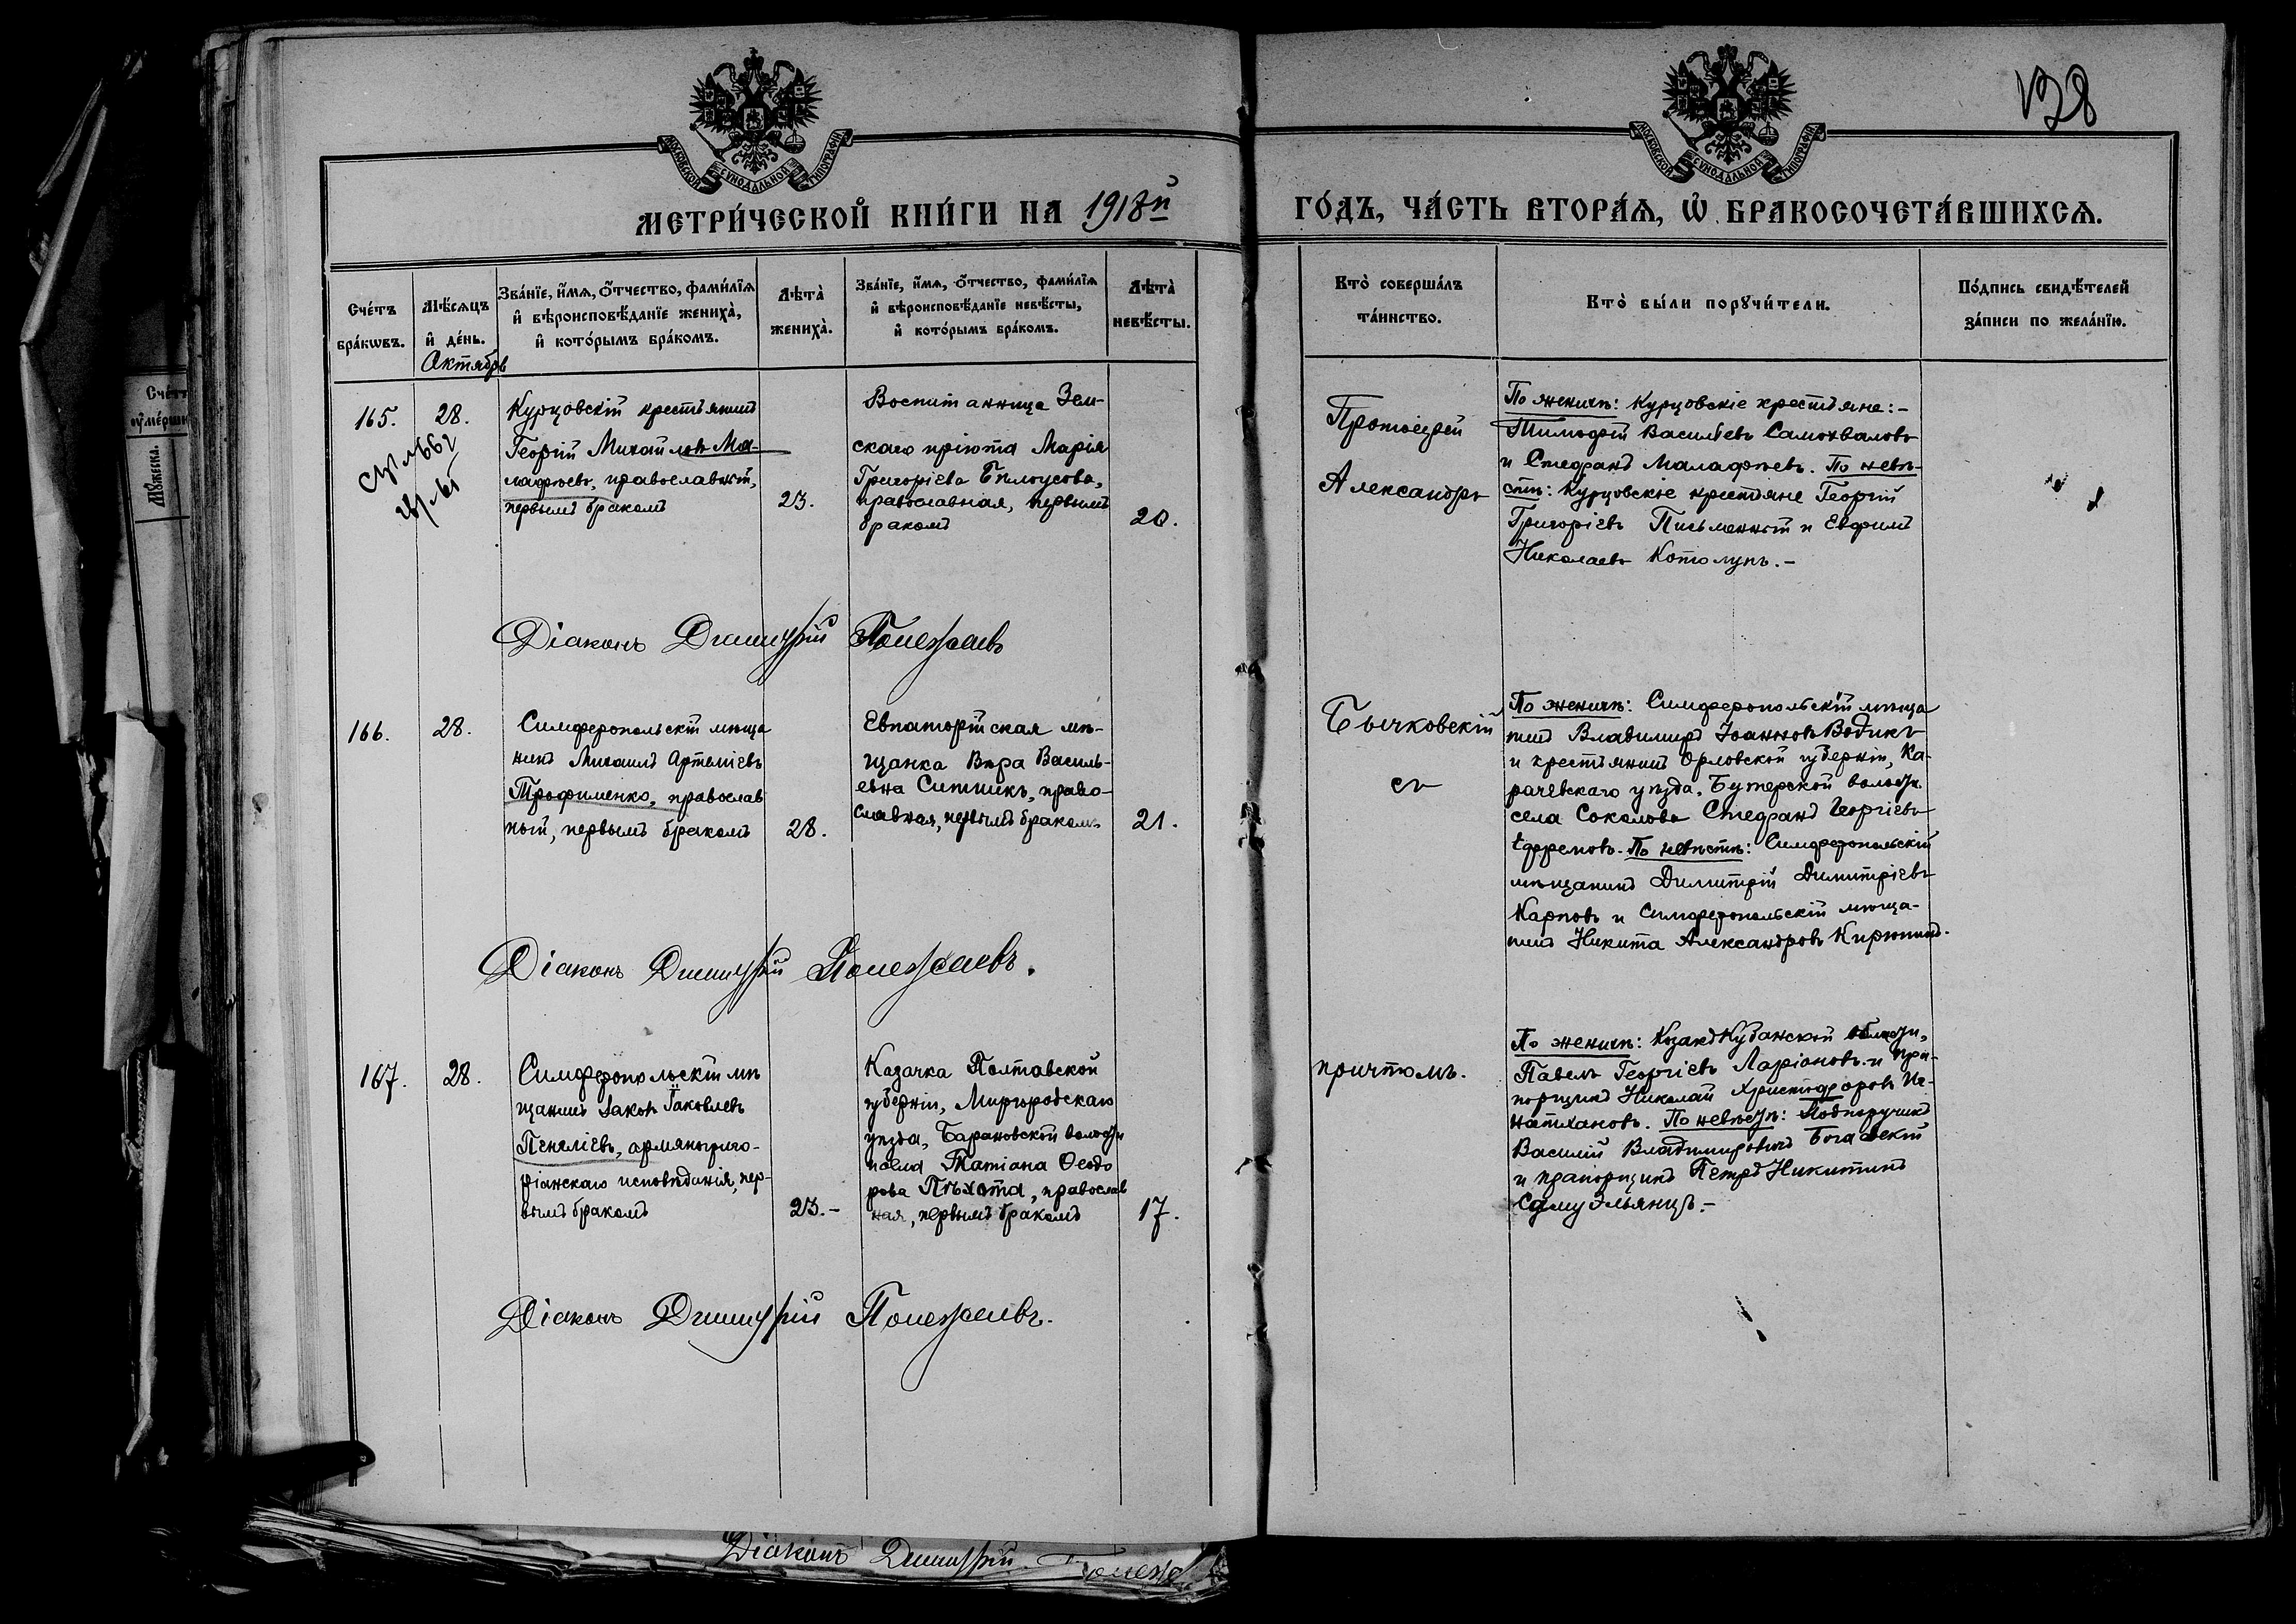 138
МОСКОВСКОЙ СУНОДАЛЬНОЙ ТИПОГРАФІИ
МОСКОВСКОЙ СУНОДАЛЬНОЙ ТИПОГРАФІИ
МЕТРИ́ЧЕСКОЙ КНИ́ГИ НА 1918й
ГО́ДЪ, ЧА́СТЬ ВТОРА́Я, Ѡ БРАКОСОЧЕТА́ВШИХСЯ.
Сче́тъ
бра́кѡвъ.
Мѣ́сяцъ
и҆ де́нь.
Октябрь
Зва́нїе, и҆́мя, ѻ҆́тчество, фами́лїя
и҆ вѣроисповѣ́данїе жениха̀,
и҆ кото́рымъ бра́комъ.
Лѣта̀
жениха̀.
Зва́нїе, и҆́мя, ѻ҆́тчество, фами́лїя
и҆ вѣроисповѣ́данїе невѣ́сты,
и҆ кото́рымъ бра́комъ.
Лѣта̀
невѣ́сты.
Кто̀ соверша́лъ
та́инство.
Кто̀ бы́ли порꙋчи́тели.
По́дпись свидѣ́телей
за́писи по жела́нїю.
165.
28.
Курцовскій крестьянинъ
Георгій Михайловъ Ма-
лафѣевъ, православный,
первымъ бракомъ
23.
Воспитанница Зем-
скаго пріюта Марія
Григоріева Бѣлоусова,
православная, первымъ
бракомъ
20.
Протоіерей
Александръ
По женихѣ: Курцовскіе крестьяне:-
Тимофей Васильевъ Самохваловъ
и Стефанъ Малафѣевъ. По невѣ-
стѣ: Курцовскіе крестьяне Георгій
Григоріевъ Письменный и Евфимъ
Николаевъ Котолупъ.-
Діаконъ Димитрій Полежаевъ
166.
28.
Симферопольскій мѣща
нинъ Михаилъ Артеміевъ
Трофименко, православ
ный, первымъ бракомъ
28.
Евпаторійская мѣ-
щанка Вѣра Василь-
евна Ситникъ, право-
славная, первымъ бракомъ
21.
Бычковскій
съ
По женихѣ: Симферопольскій мѣща
нинъ Владимиръ Іоанновъ Водикъ
и крестьянинъ Орловской губерніи, Ка-
рачевскаго уѣзда,
села Соколова Стефанъ Георгіевъ
Ефремовъ. По невѣстѣ: Симферопольскій
мѣщанинъ Димитрій Димитріевъ
Карповъ и Симферопольскій мѣща-
нинъ Никита Александровъ Кирюшинъ.
Діаконъ Димитрій Полежаевъ.
167.
28.
Симферопольскій мѣ
щанинъ Іаковъ Іаковлевъ
армяногриго-
ріанскаго исповѣданія, пер-
вымъ бракомъ
23.-
Казачка Полтавской
губерніи, Миргородскаго
уѣзда, Барановской волости
и села Татіана Ѳеодо
рова Пѣхота, православ
ная, первымъ бракомъ
17.
причтомъ.
По женихѣ: Козакъ Кубанской области,
Павелъ Георгіевъ Ларіоновъ и пра-
порщикъ Николай Христофоровъ
По невѣстѣ: Подпоручикъ
Василій Владимировичъ
и прапорщикъ Петръ Никитинъ
Самуэльянцъ.-
Діаконъ Димитрій Полежаевъ.
Сче́тъ
ᲂу҆ме́рши
Мꙋ́жеска.
Діаконъ Димитрій